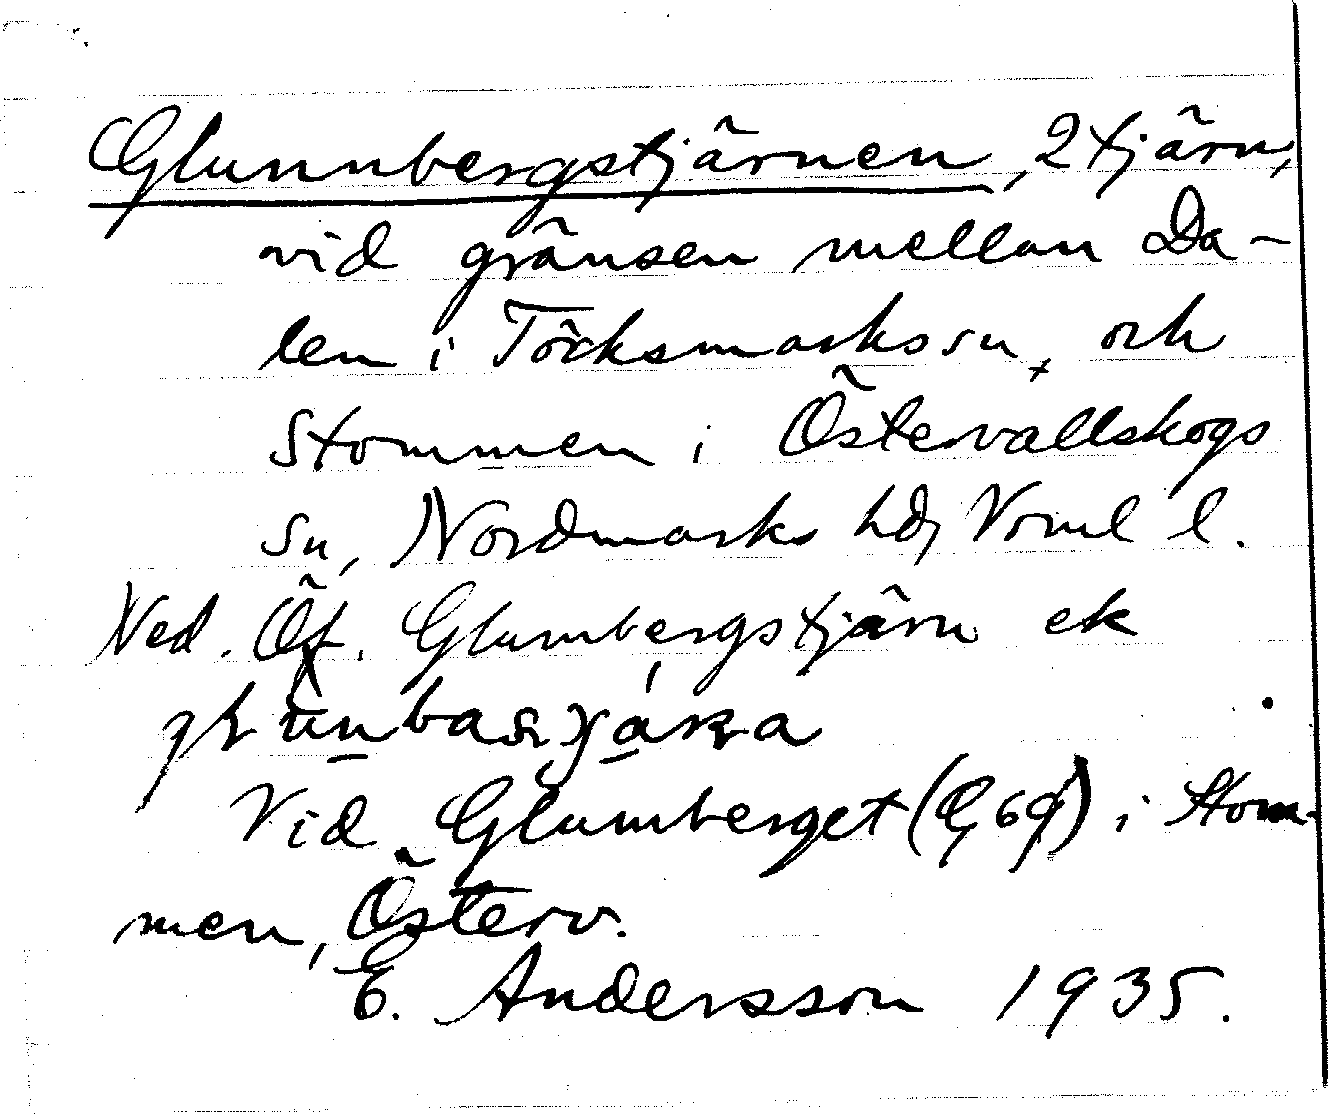 Glunnbergstjärnen, 2 tjärn,
vid gränsen mellan Da-
len i Töcksmarks sn, och
Stommen i Östervallskogs
sn, Nordmarks hd, Verml l.
Ned. Öf. Glumbergstjärn ek
Vid Glumberget (G 69) i Stom-
men, Österv.
E. Andersson 1935.